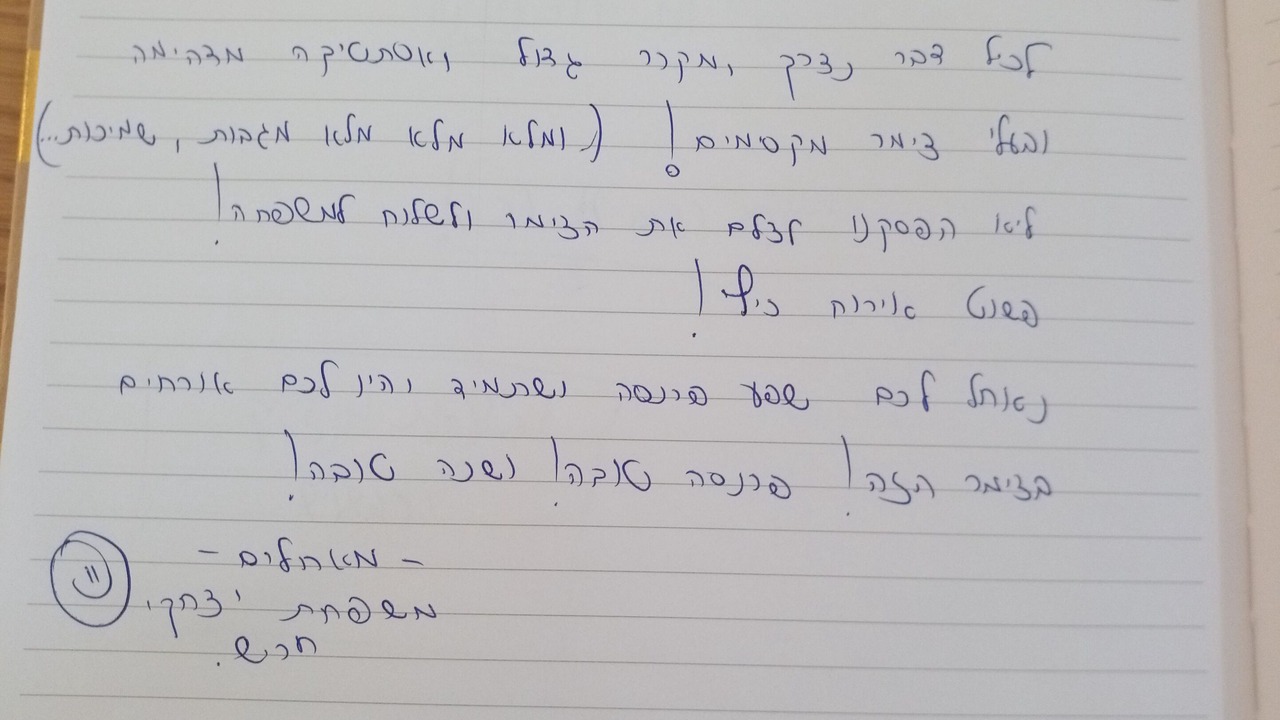 לכל דבר נצרך, מקרר גדול ואסתטיקה מדהימה
ובעלי צימר מקסימים! (ומלא מלא מלא מגבות, שמיכות...)
לא הפסקנו לצלם את הצימר ולשלוח למשפחה!
פשוט אירוח כיף!
נאחל לכם שפע פרנסה ושתמיד יהיו לכם אורחים
בצימר הזה! פרנסה טובה! ושנה טובה!
- מאחלים -
משפחת יצחקי,
חריש.